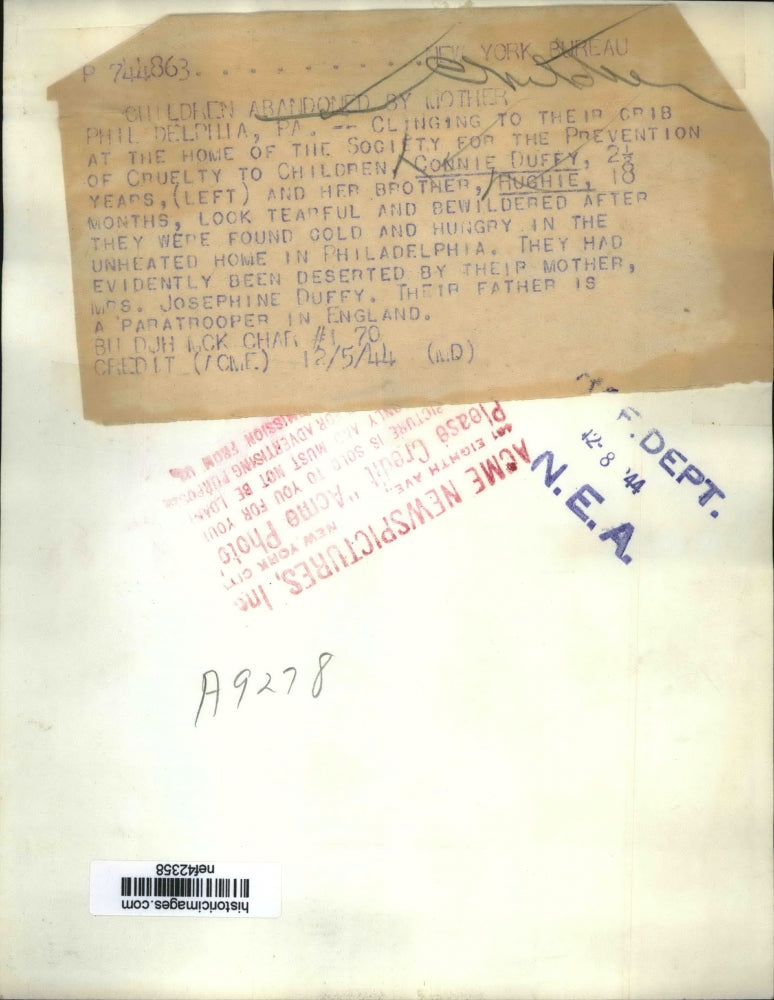 P 744863. . . . . . . . . . . NEW YORK BUREAU
CHILDREN ABANDONED BY MOTHER
PHIL DELPHIA, PA. -- CLINGING TO THEIR CRIB
AT THE HOME OF THE SOCIETY FOR THE PREVENTION
OF CRUELTY TO CHILDREN, CONNIE DUFFY, 2½
YEARS, (LEFT) AND HER BROTHER, HUGHIE, 18
MONTHS, LOOK TEARFUL AND BEWILDERED AFTER
THEY WERE FOUND COLD AND HUNGRY IN THE
UNHEATED HOME IN PHILADELPHIA. THEY HAD
EVIDENTLY BEEN DESERTED BY THEIR MOTHER,
MRS. JOSEPHINE DUFFY. THEIR FATHER IS
A PARATROOPER IN ENGLAND.
BU DJH MCK CHAR #1 70
CREDIT (ACME) 12/5/44 (MD)
DEPT.
12-8 '44
N.E.A.
ACME NEWSPICTURES, Inc
461 EIGHTH AVE., NEW YORK CITY
Please Credit "Acme Photo
PICTURE IS SOLD TO YOU FOR YOUR
ONLY AND MUST NOT BE LOANED
OR ADVERTISING PURPOSES
MISSION FROM US
A9278
historicimages.com
nef42358